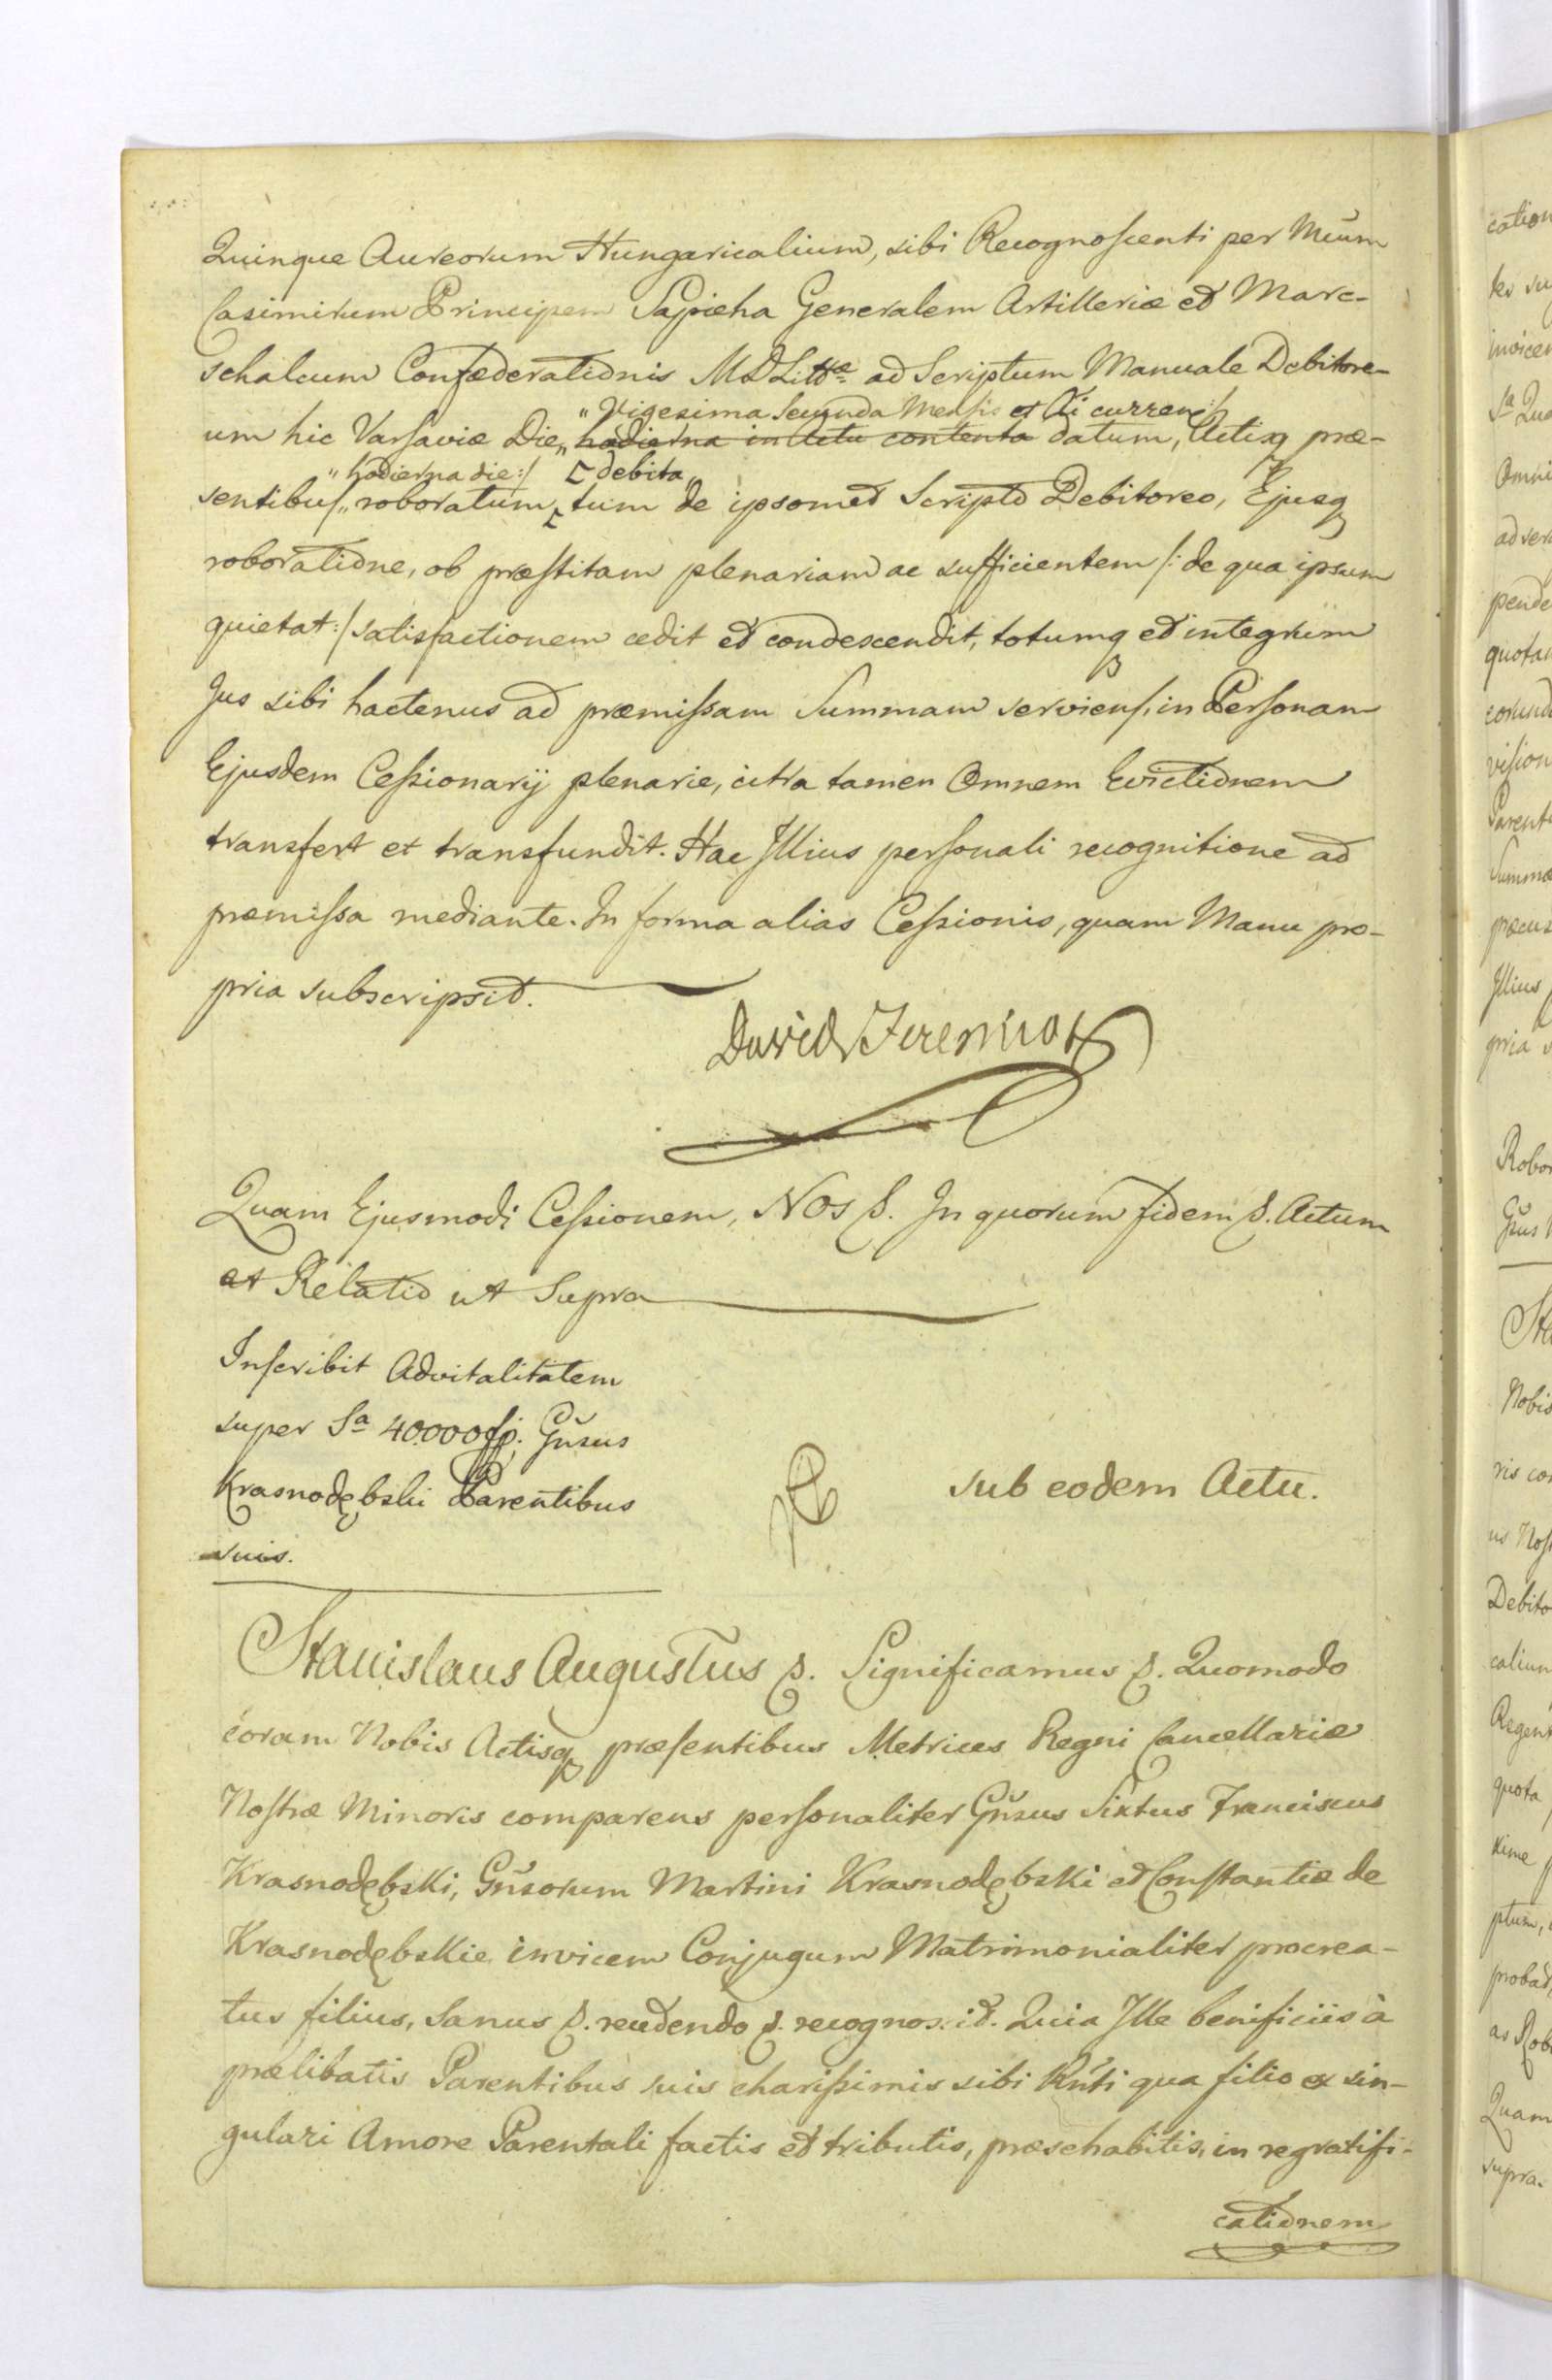 Quinque Aureorum Hungaricalium, sibi Recognoscenti per Mcum
Casimirum Principem Sapieha Generalem Artilleriæ et Mare-
schalcum Confæderationis M D Littæ ad Scriptum Manuale Debitore-
"Vigesima Secunda Mensis et Ai curren:/
um hic Varsaviæ Die, hodierna in Actu contenta datum, Actisq præ-
"hodierna die:/ [debita"
sentibus roboratum, tum de ipsomet Scripto Debitoreo, Ejusq
roboratione, ob præstitam plenariam ac sufficientem /: de qua ipsum
quietat:/ satisfactionem cedit et condescendit, totumq et integrum
Jus sibi hactenus ad præmissam Summam serviens, in Personam
Ejusdem Cessionarij plenarie, citra tamen Omnem Evictionem
transfert et transfundit. Hac Illius personali recognitione ad
præmissa mediante. In forma alias Cessionis, quam Manu pro-
pria subscripsit.
David Jeremias
Quam Ejusmodi Cessionem, Nos &. In quorum fidem &. Actum
et Relatio ut Supra
Inscribit Advitalitatem
super Sa 40000 fp. Gnsus
Krasnodębski Parentibus
suis.
sub eodem Actu.
Stanislaus Augustus &. Significamus &. Quomodo
coram Nobis Actisq præsentibus Metrices Regni Cancellariæ
Nostræ Minoris comparens personaliter Gnsus Sixtus Franciscus
Krasnodębski, Gnsorum Martini Krasnodębski et Constantiæ de
Krasnodębskie invicem Conjugum Matrimonialiter procrea-
tus filius, Sanus &. recedendo &. recognos: id. Quia Ille benificiis à
prælibatis Parentibus suis charissimis sibi Rnti qua filio ex sin-
gulari Amore Parentali factis et tributis, præsehabitis, in regratifi-
cationem